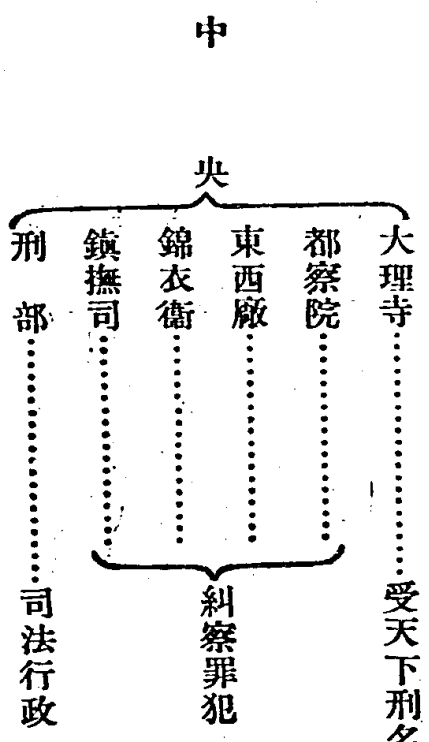 中央
大理寺………受天下刑名
都察院………
東西廠………
錦衣衞………
鎮撫司………
糾察罪犯
刑部………司法行政